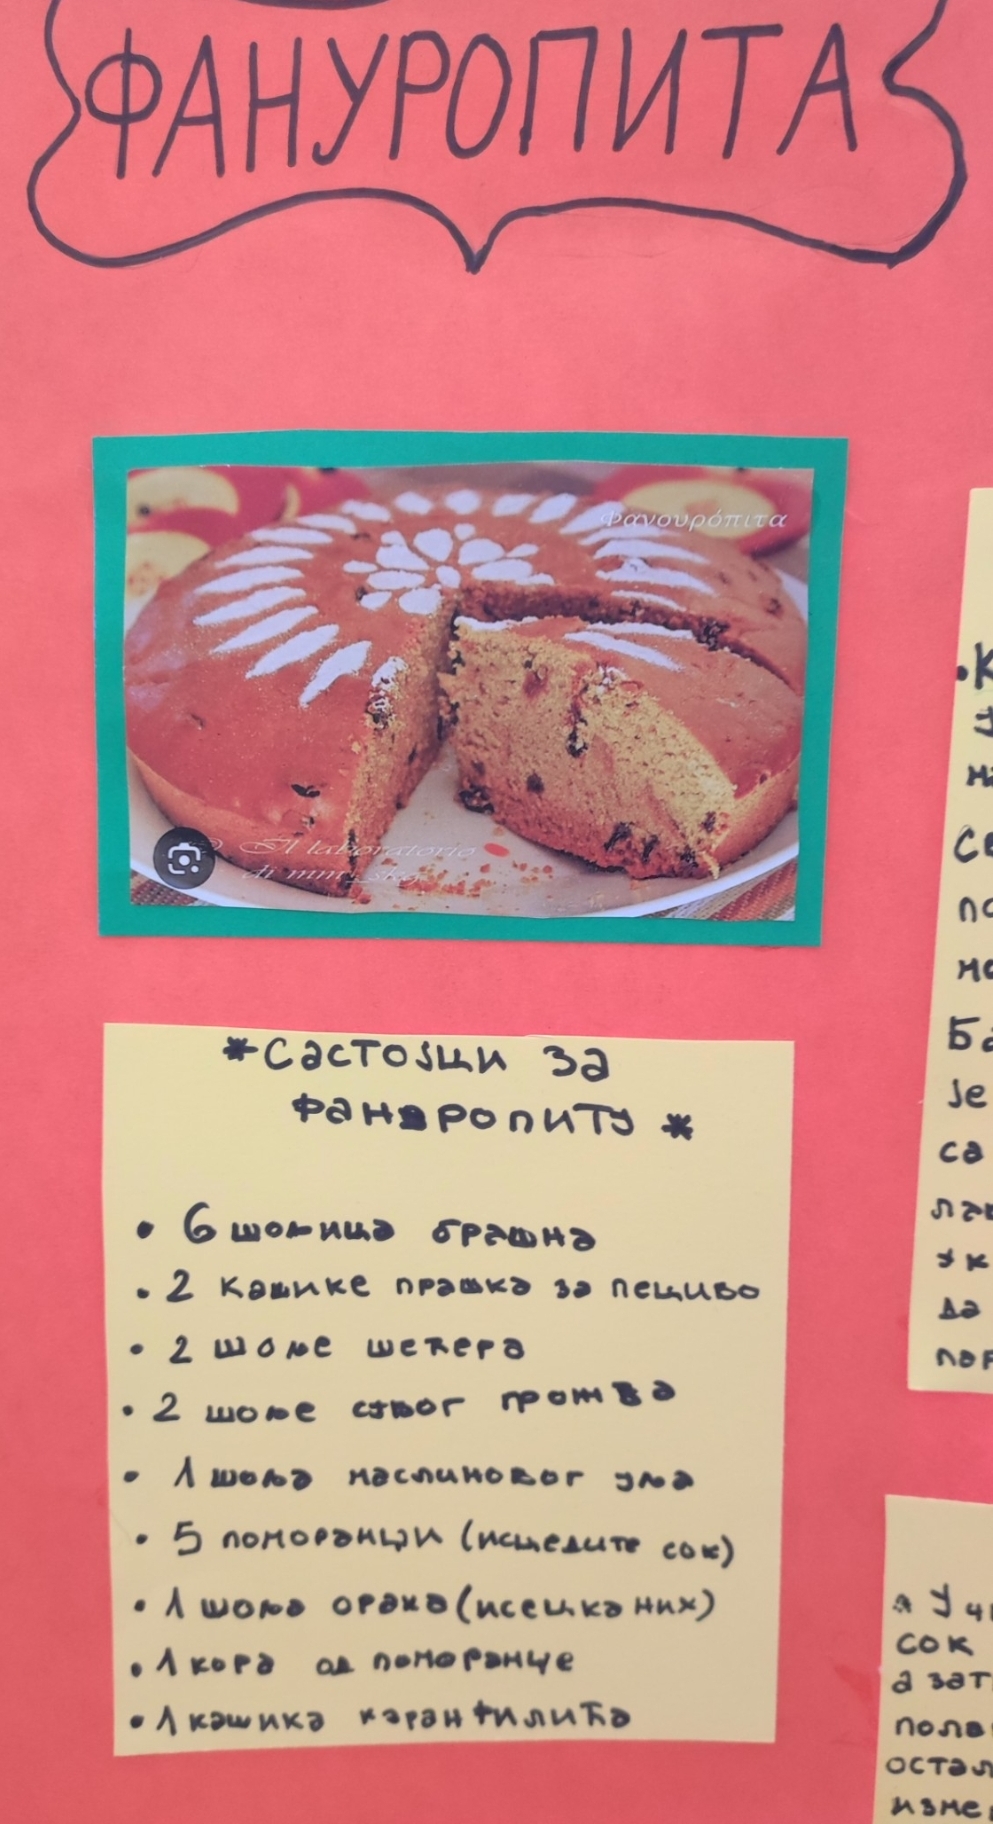 ФАНУРОПИТА
Φανουρόπιτα
© Il laboratorio
di mm_skg
*Састојци за
фануропиту*
• 6 шољица брашна
• 2 кашике прашка за пециво
• 2 шоље шећера
• 2 шоље сувог грожђа
• 1 шоља маслиновог уља
• 5 поморанџи (исцедите сок)
• 1 шоља ораха (исецканих)
• 1 кора од поморанџе
• 1 кашика каранфилића
је
са
да
* Уч
сок
а зат
остал